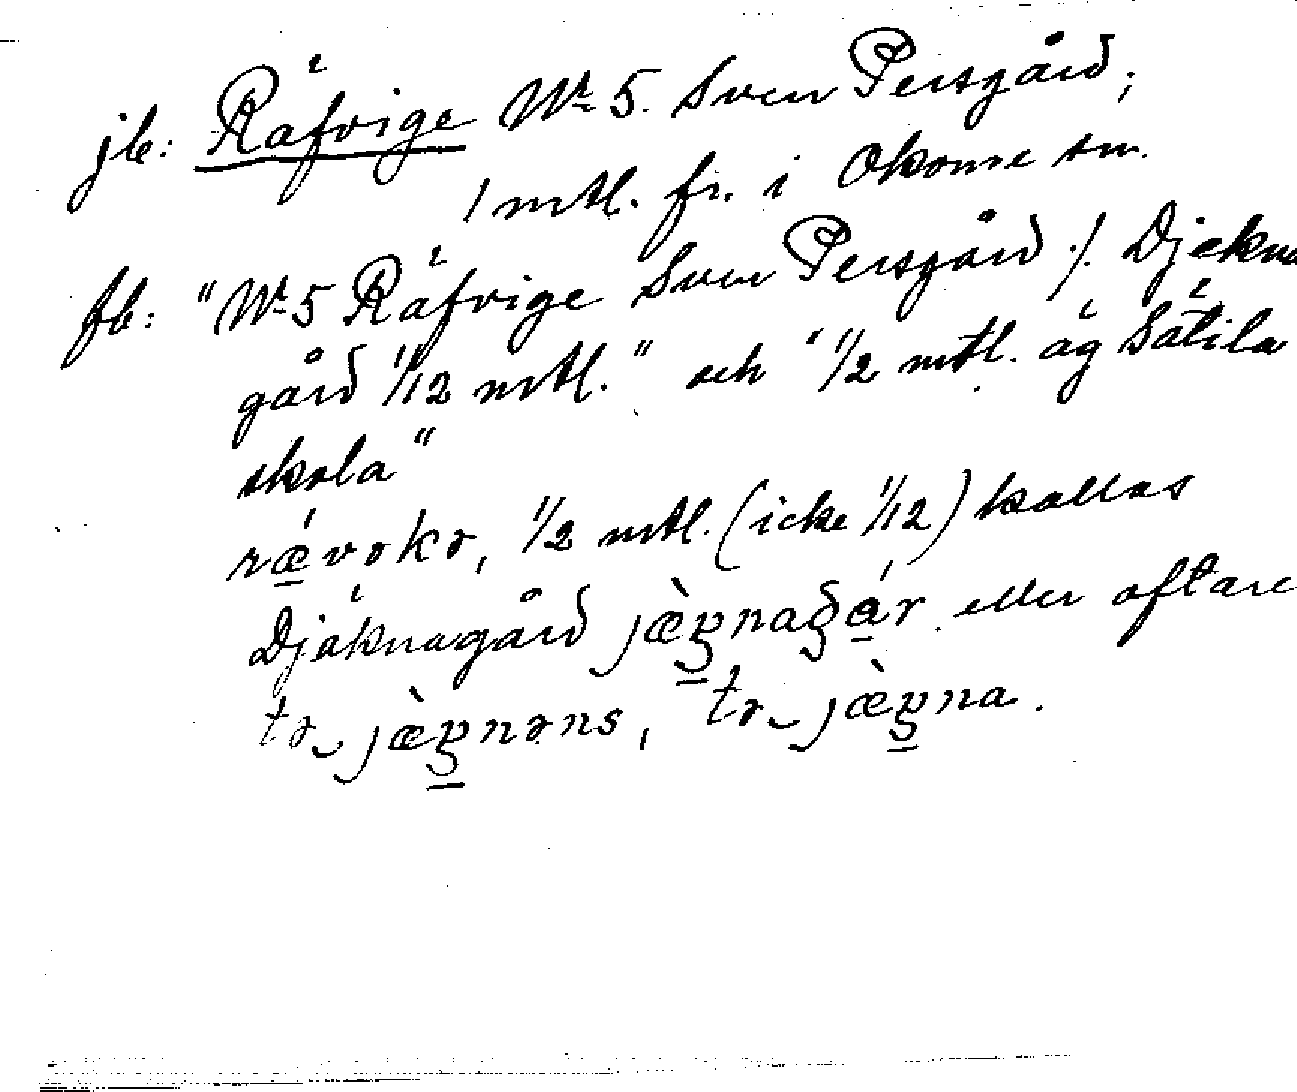 jb: Räfvige Nr 5. Sven Persgård;
1 mtl. fr. i Okome sn.
fb: "Nr 5 Räfvige Sven Persgård ./. Djekna
gård 1/12 mtl." och "1/2 mtl. äg Sätila
skola"
rǽ̲vəkə, 1/2 mtl. (icke 1/12) kallas
Djäknagård jæ̀g̲nagá̲r eller oftare
tə jæ̀g̲nəns, tə jæ̀g̲na.